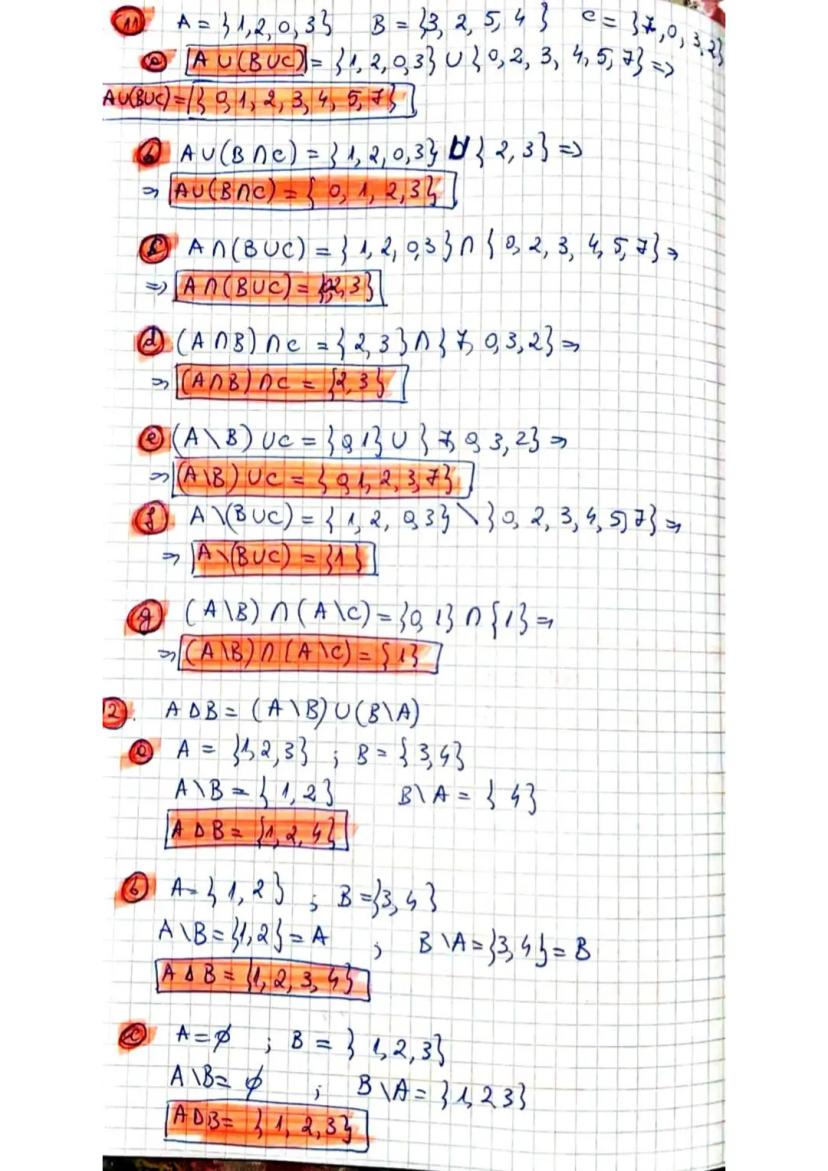 11 A = {1,2,0,3} B = {3,2,5,4} C = {7,0,3,2}
a A∪(B∪C) = {1,2,0,3} ∪ {0,2,3,4,5,7} =>
A∪(B∪C) = {0,1,2,3,4,5,7}
b A∪(B∩C) = {1,2,0,3} ∪ {2,3} =>
=> A∪(B∩C) = {0,1,2,3}
c A∩(B∪C) = {1,2,0,3} ∩ {0,2,3,4,5,7} =>
=> A∩(B∪C) = {0,2,3}
d (A∩B)∩C = {2,3} ∩ {7,0,3,2} =>
=> (A∩B)∩C = {2,3}
e (A\B)∪C = {0,1} ∪ {7,0,3,2} =>
=> (A\B)∪C = {0,1,2,3,7}
f A\(B∪C) = {1,2,0,3} \ {0,2,3,4,5,7} =>
=> A\(B∪C) = {1}
g (A\B)∩(A\C) = {0,1} ∩ {1} =>
=> (A\B)∩(A\C) = {1}
2. A∆B = (A\B)∪(B\A)
a A = {1,2,3} ; B = {3,4}
A\B = {1,2} B\A = {4}
A∆B = {1,2,4}
b A = {1,2} ; B = {3,4}
A\B = {1,2} = A ; B\A = {3,4} = B
A∆B = {1,2,3,4}
c A = ∅ ; B = {1,2,3}
A\B = ∅ ; B\A = {1,2 3}
A∆B = {1,2,3}